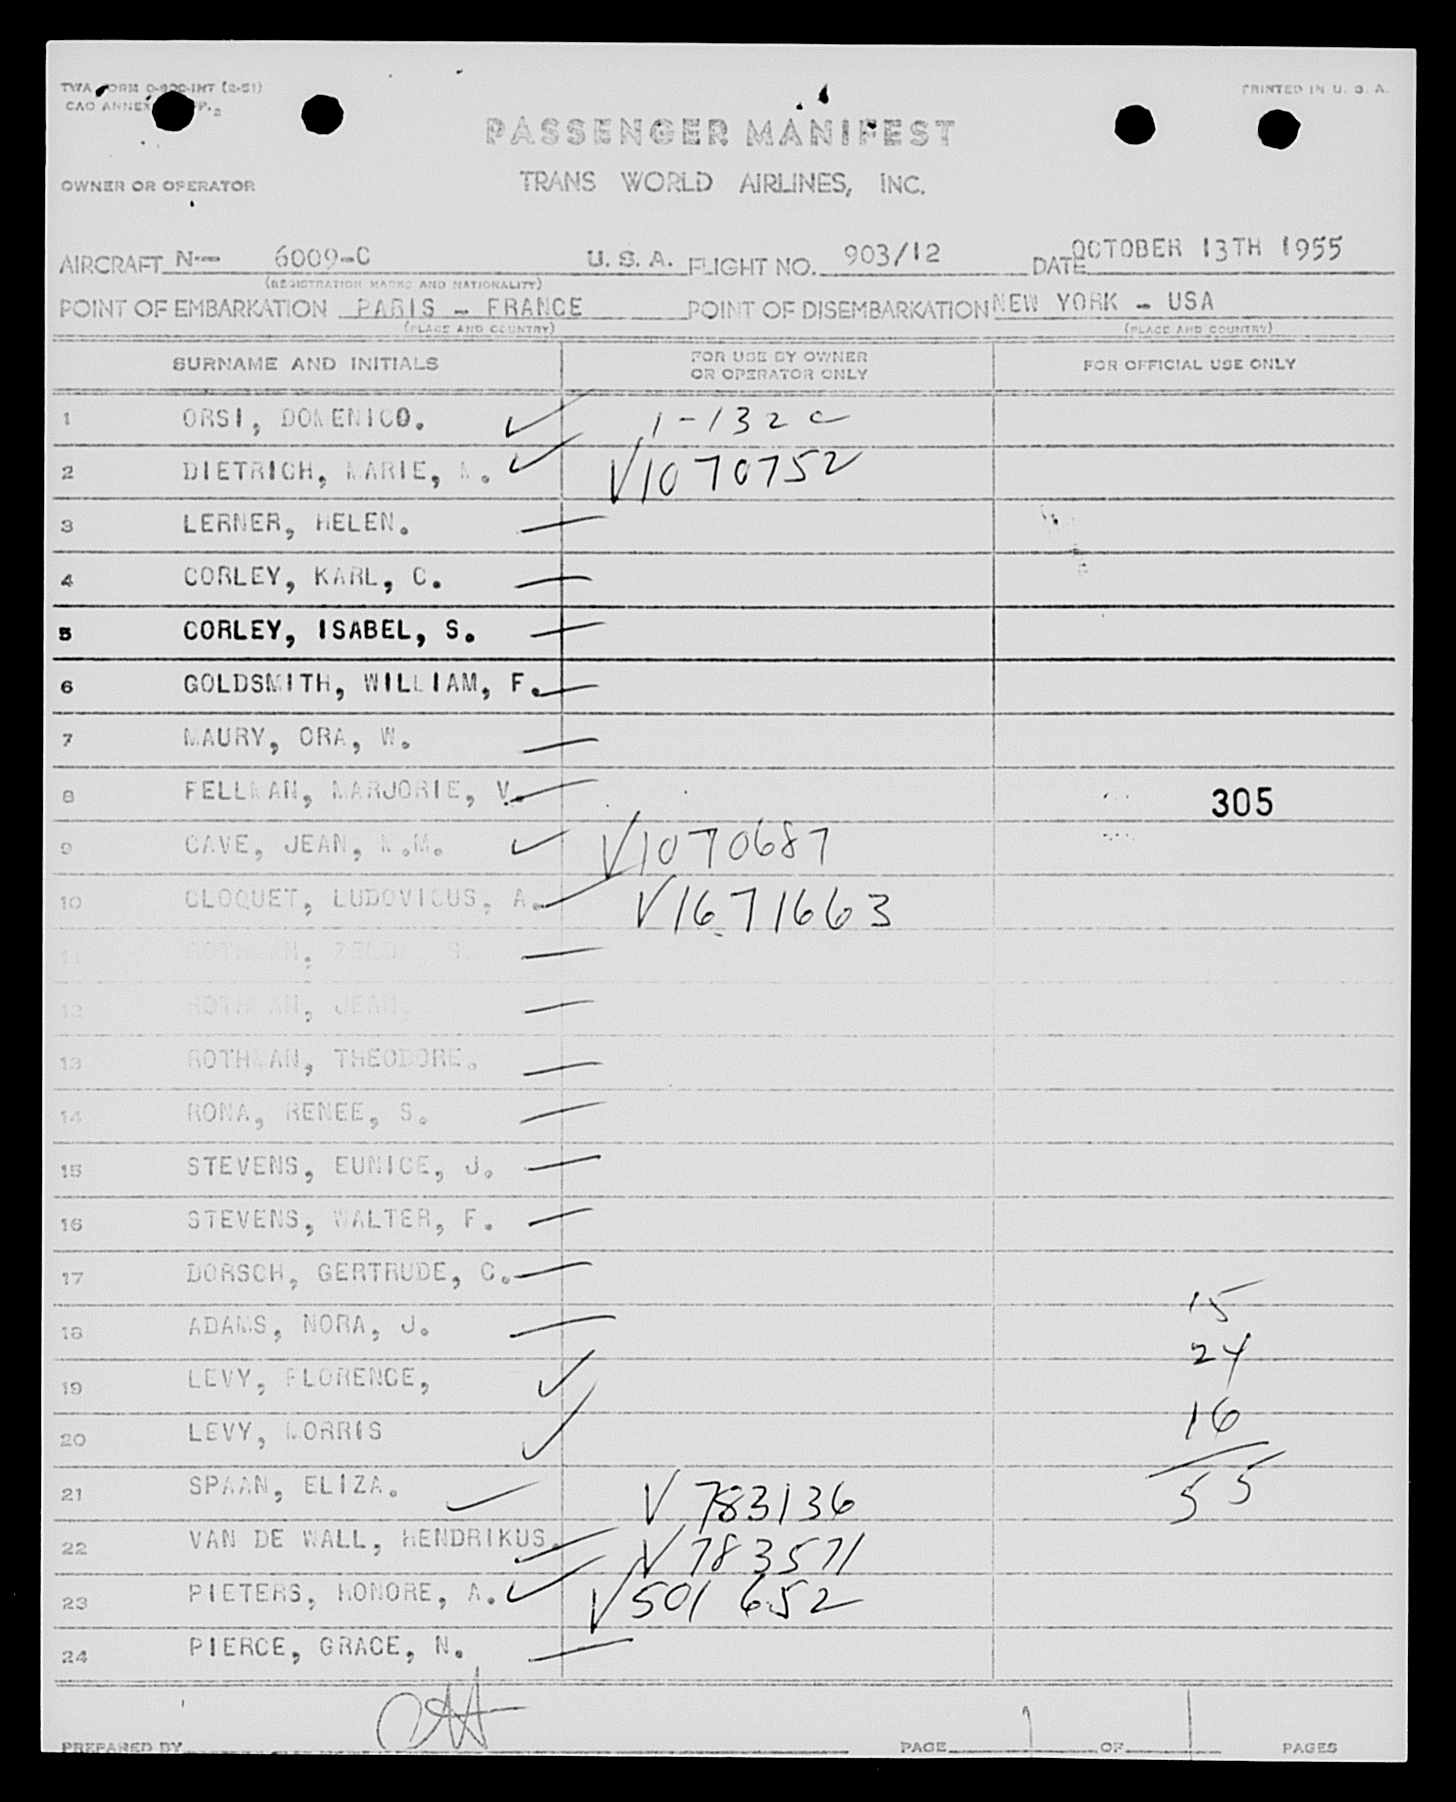 TWA FORM 0-900-INT (2-51)
PRINTED IN U. S. A.
CAO ANNEX
PASSENGER MANIFEST
OWNER OR OPERATOR
TRANS WORLD AIRLINES, INC.
AIRCRAFT N-- 6009-C U. S. A. FLIGHT NO. 903/12 DATE OCTOBER 13TH 1955
(REGISTRATION MARKS AND NATIONALITY)
POINT OF EMBARKATION PARIS - FRANCE POINT OF DISEMBARKATION NEW YORK - USA
(PLACE AND COUNTRY) (PLACE AND COUNTRY)
SURNAME AND INITIALS FOR USE BY OWNER OR OPERATOR ONLY FOR OFFICIAL USE ONLY
1 ORSI, DOMENICO. ✓ 1-132 C
2 DIETRICH, MARIE, M. ✓ V1070752
3 LERNER, HELEN. —
4 CORLEY, KARL, C. —
5 CORLEY, ISABEL, S. —
6 GOLDSMITH, WILLIAM, F. —
7 MAURY, ORA, W. —
8 FELLMAN, MARJORIE, V. — 305
9 CAVE, JEAN, M.M. ✓ V1070687
10 CLOQUET, LUDOVICUS, A. V1671663
11 ROTHMAN, —
12 ROTHMAN, JEAN. —
13 ROTHMAN, THEODORE. —
14 RONA, RENEE, S. —
15 STEVENS, EUNICE, J. —
16 STEVENS, WALTER, F. —
17 DORSCH, GERTRUDE, C. — 15
18 ADAMS, NORA, J. — 24
19 LEVY, FLORENCE, ✓ 16
20 LEVY, MORRIS ✓ 55
21 SPAAN, ELIZA. ✓ V 783136
22 VAN DE WALL, HENDRIKUS. ✓ V 783571
23 PIETERS, HONORE, A. ✓ V501 652
24 PIERCE, GRACE, N. —
PREPARED BY PAGE 1 OF 1 PAGES